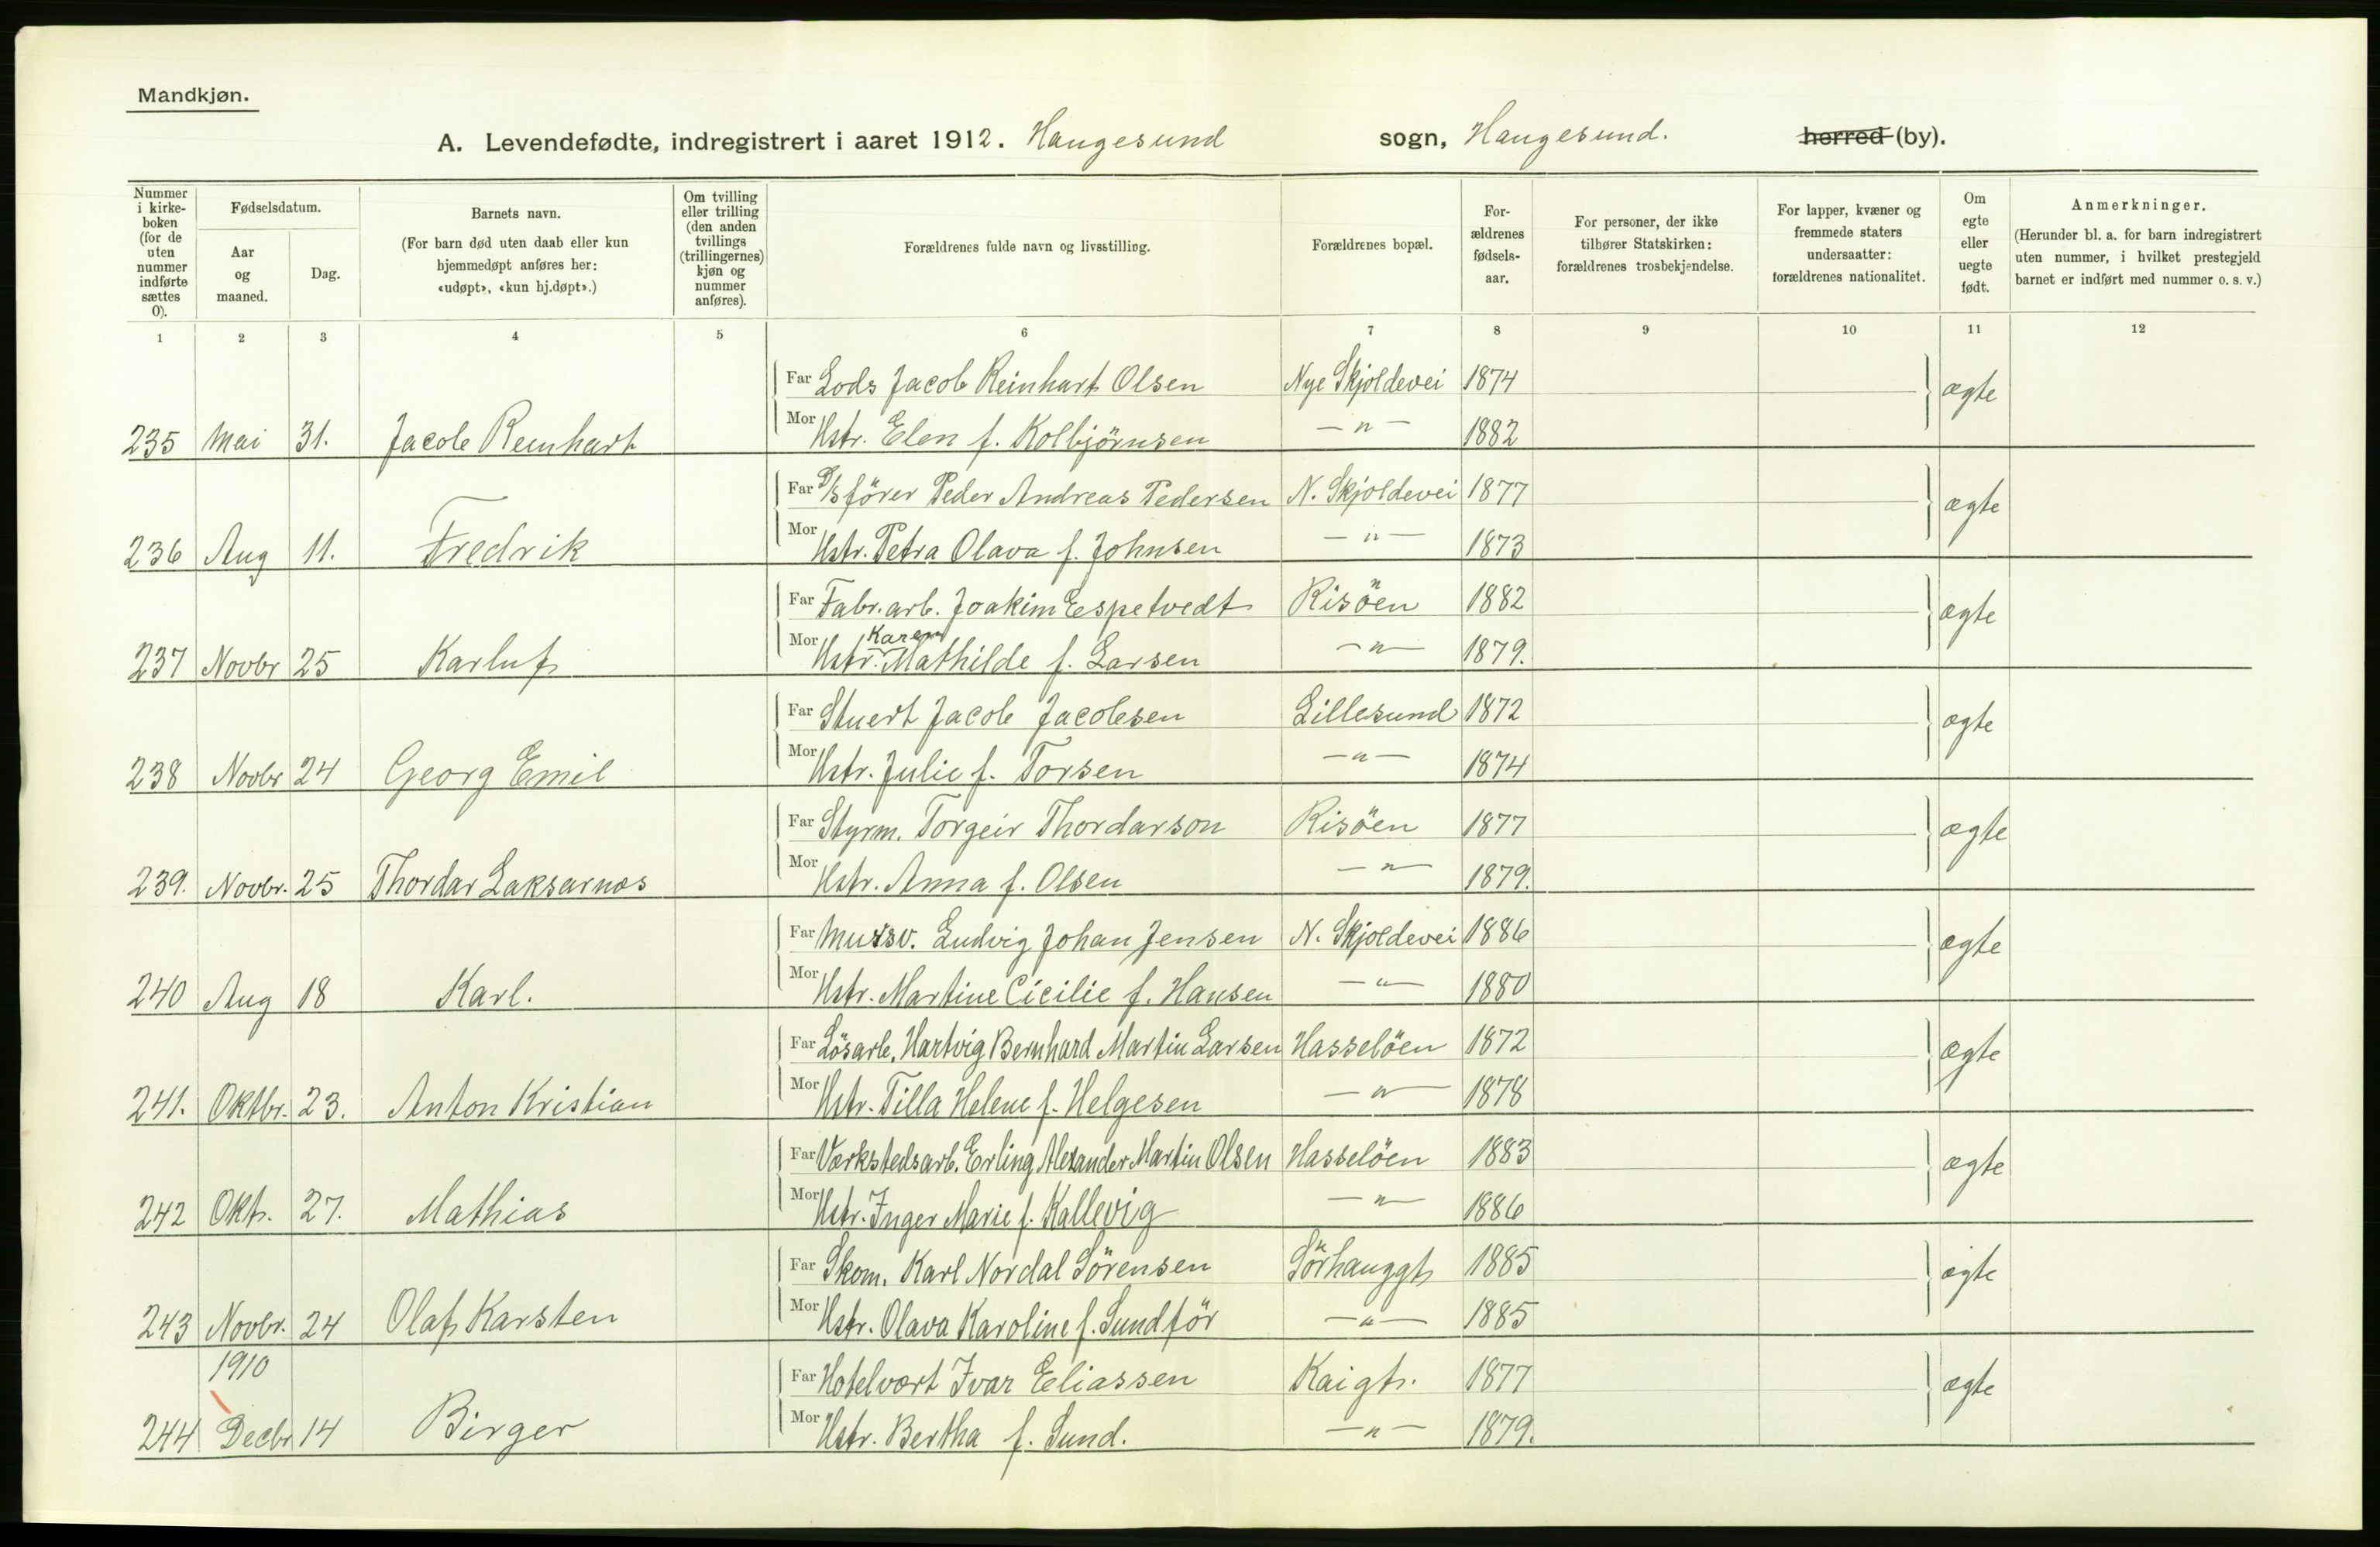 Mandkjøn.
A. Levendefødte, indregistrert i aaret 1912. Haugesund sogn, Haugesund. herred (by).
Nummer i kirkeboken (for de uten nummer indførte sættes 0).
Fødselsdatum.
Aar og maaned.
Dag.
Barnets navn.
(For barn død uten daab eller kun hjemmedøpt anføres her: «udøpt», «kun hj.døpt».)
Om tvilling eller trilling (den anden tvillings (trillingernes) kjøn og nummer anføres).
Forældrenes fulde navn og livsstilling.
Forældrenes bopæl.
Forældrenes fødselsaar.
For personer, der ikke tilhører Statskirken: forældrenes trosbekjendelse.
For lapper, kvæner og fremmede staters undersaatter: forældrenes nationalitet.
Om egte eller uegte født.
Anmerkninger.
(Herunder bl. a. for barn indregistrert uten nummer, i hvilket prestegjeld barnet er indført med nummer o. s. v.)
1 2 3 4 5 6 7 8 9 10 11 12
Far Lods Jacob Reinhart Olsen Nye Skjoldevei 1874 ægte
235 Mai 31. Jacob Reinhart Mor Hstr. Elen f. Kolbjörnsen — " — 1882
Far D/S förer Peder Andreas Pedersen N. Skjoldevei 1877 ægte
236 Aug 11. Fredrik Mor Hstr. Petra Olava f. Johnsen — " — 1873
Far Fabr. arb. Joakim Espetvedt Risöen 1882 ægte
237 Novbr 25 Karluf Mor Hstr. Karen Mathilde f. Larsen — " — 1879.
Far Stuert Jacob Jacobsen Lillesund 1872 ægte
238 Novbr 24 Georg Emil Mor Hstr. Julie f. Torsen — " — 1874
Far Styrm. Torgeir Thordarson Risöen 1877 ægte
239. Novbr. 25 Thordar Laksarnos Mor Hstr. Anna f. Olsen — " — 1879.
Far Mursv. Ludvig Johan Jensen N. Skjoldevei 1886 ægte
240 Aug 18 Karl. Mor Hstr. Martine Cicilie f. Hansen — " — 1880
Far Lösarb. Hartvig Bernhard Martin Larsen Hasselöen 1872 ægte
241. Oktbr. 23. Anton Kristian Mor Hstr. Tilla Helene f. Helgesen — " — 1878
Far Værkstedsarb. Erling Alexander Martin Olsen Hasselöen 1883 ægte
242 Okt. 27. Mathias Mor Hstr. Inger Marie f. Kallevig — " — 1886
Far Skom. Karl Nordal Sörensen Sörhauggt 1885 ægte
243 Novbr. 24 Olaf Karsten Mor Hstr. Olava Karoline f. Sundför — " — 1885
1910 Far Hotelvært Ivar Eliassen Kaigt. 1877 ægte
244 Decbr 14 Birger Mor Hstr. Bertha f. Sund. — " — 1879.